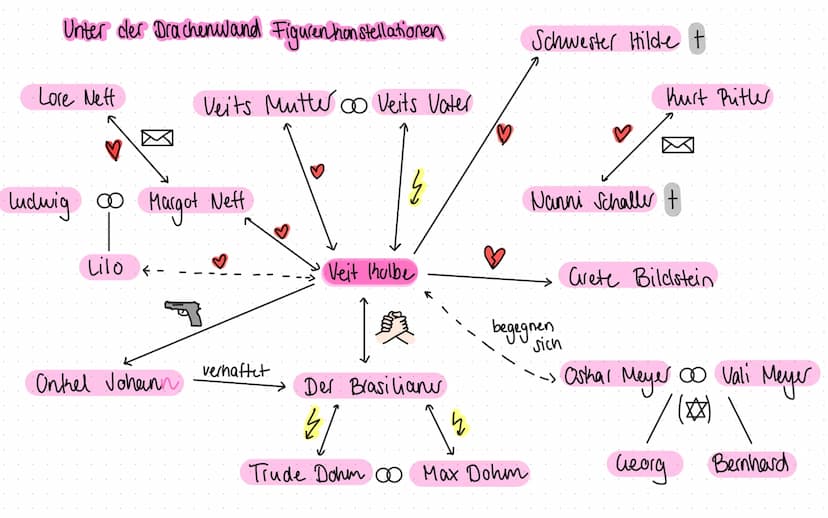 Unter der Drachenwand Figurenkonstellationen
Schwester Hilde †
Lore Neff
Veits Mutter
Veits Vater
Kurt Ritler
Ludwig
Margot Neff
Nanni Schaller †
Lilo
Veit Kolbe
Grete Bildstein
begegnen
sich
Onkel Johann
verhaftet
Der Brasilianer
Oskar Meyer
Vali Meyer
Trude Dohm
Max Dohm
Georg
Bernhard